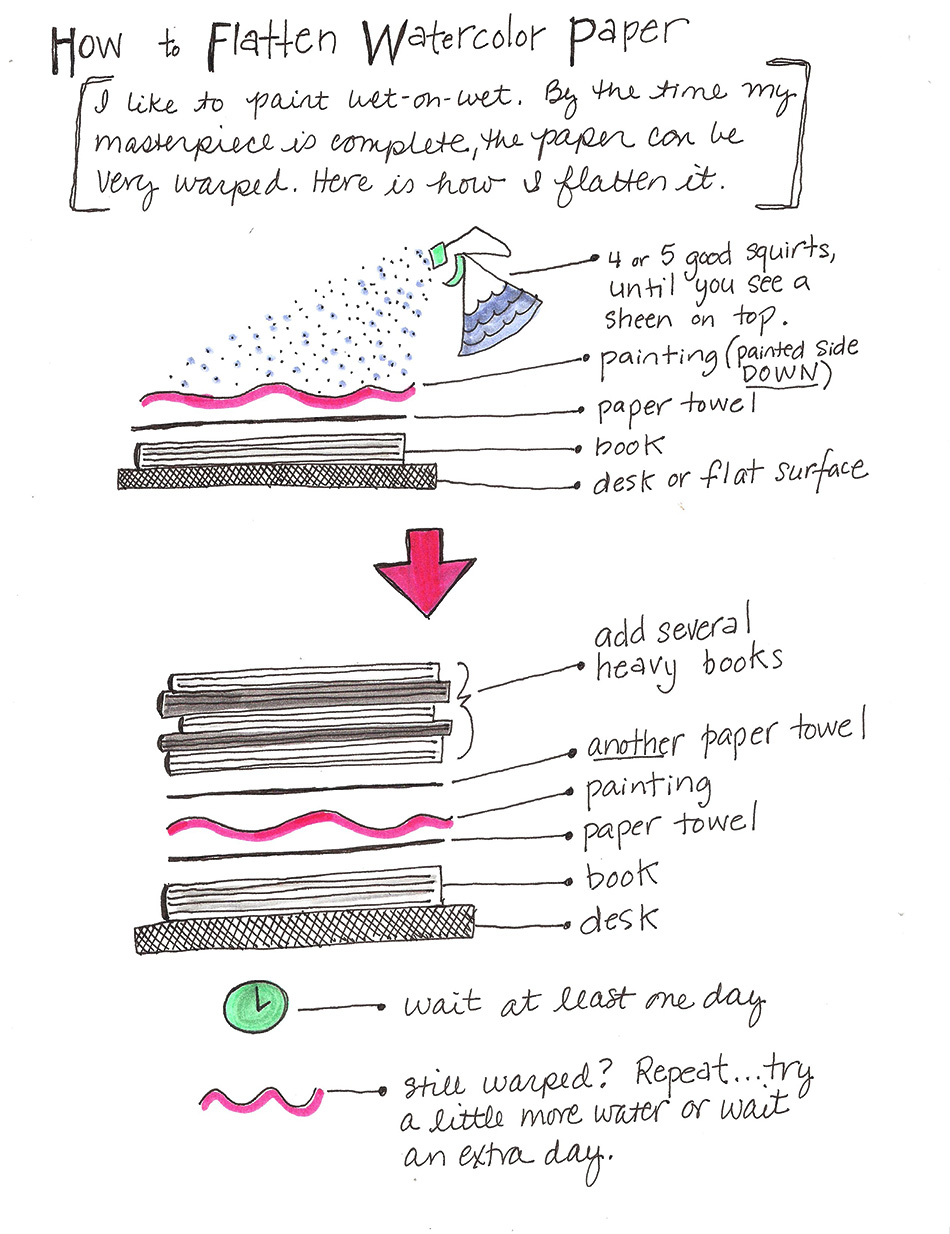 How to Flatten Watercolor Paper
I like to paint wet-on-wet. By the time my
masterpiece is complete, the paper can be
very warped. Here is how I flatten it.
4 or 5 good squirts,
until you see a
sheen on top.
painting (painted side
DOWN)
paper towel
book
desk or flat surface
add several
heavy books
another paper towel
painting
paper towel
book
desk
wait at least one day
still warped? Repeat...try
a little more water or wait
an extra day.